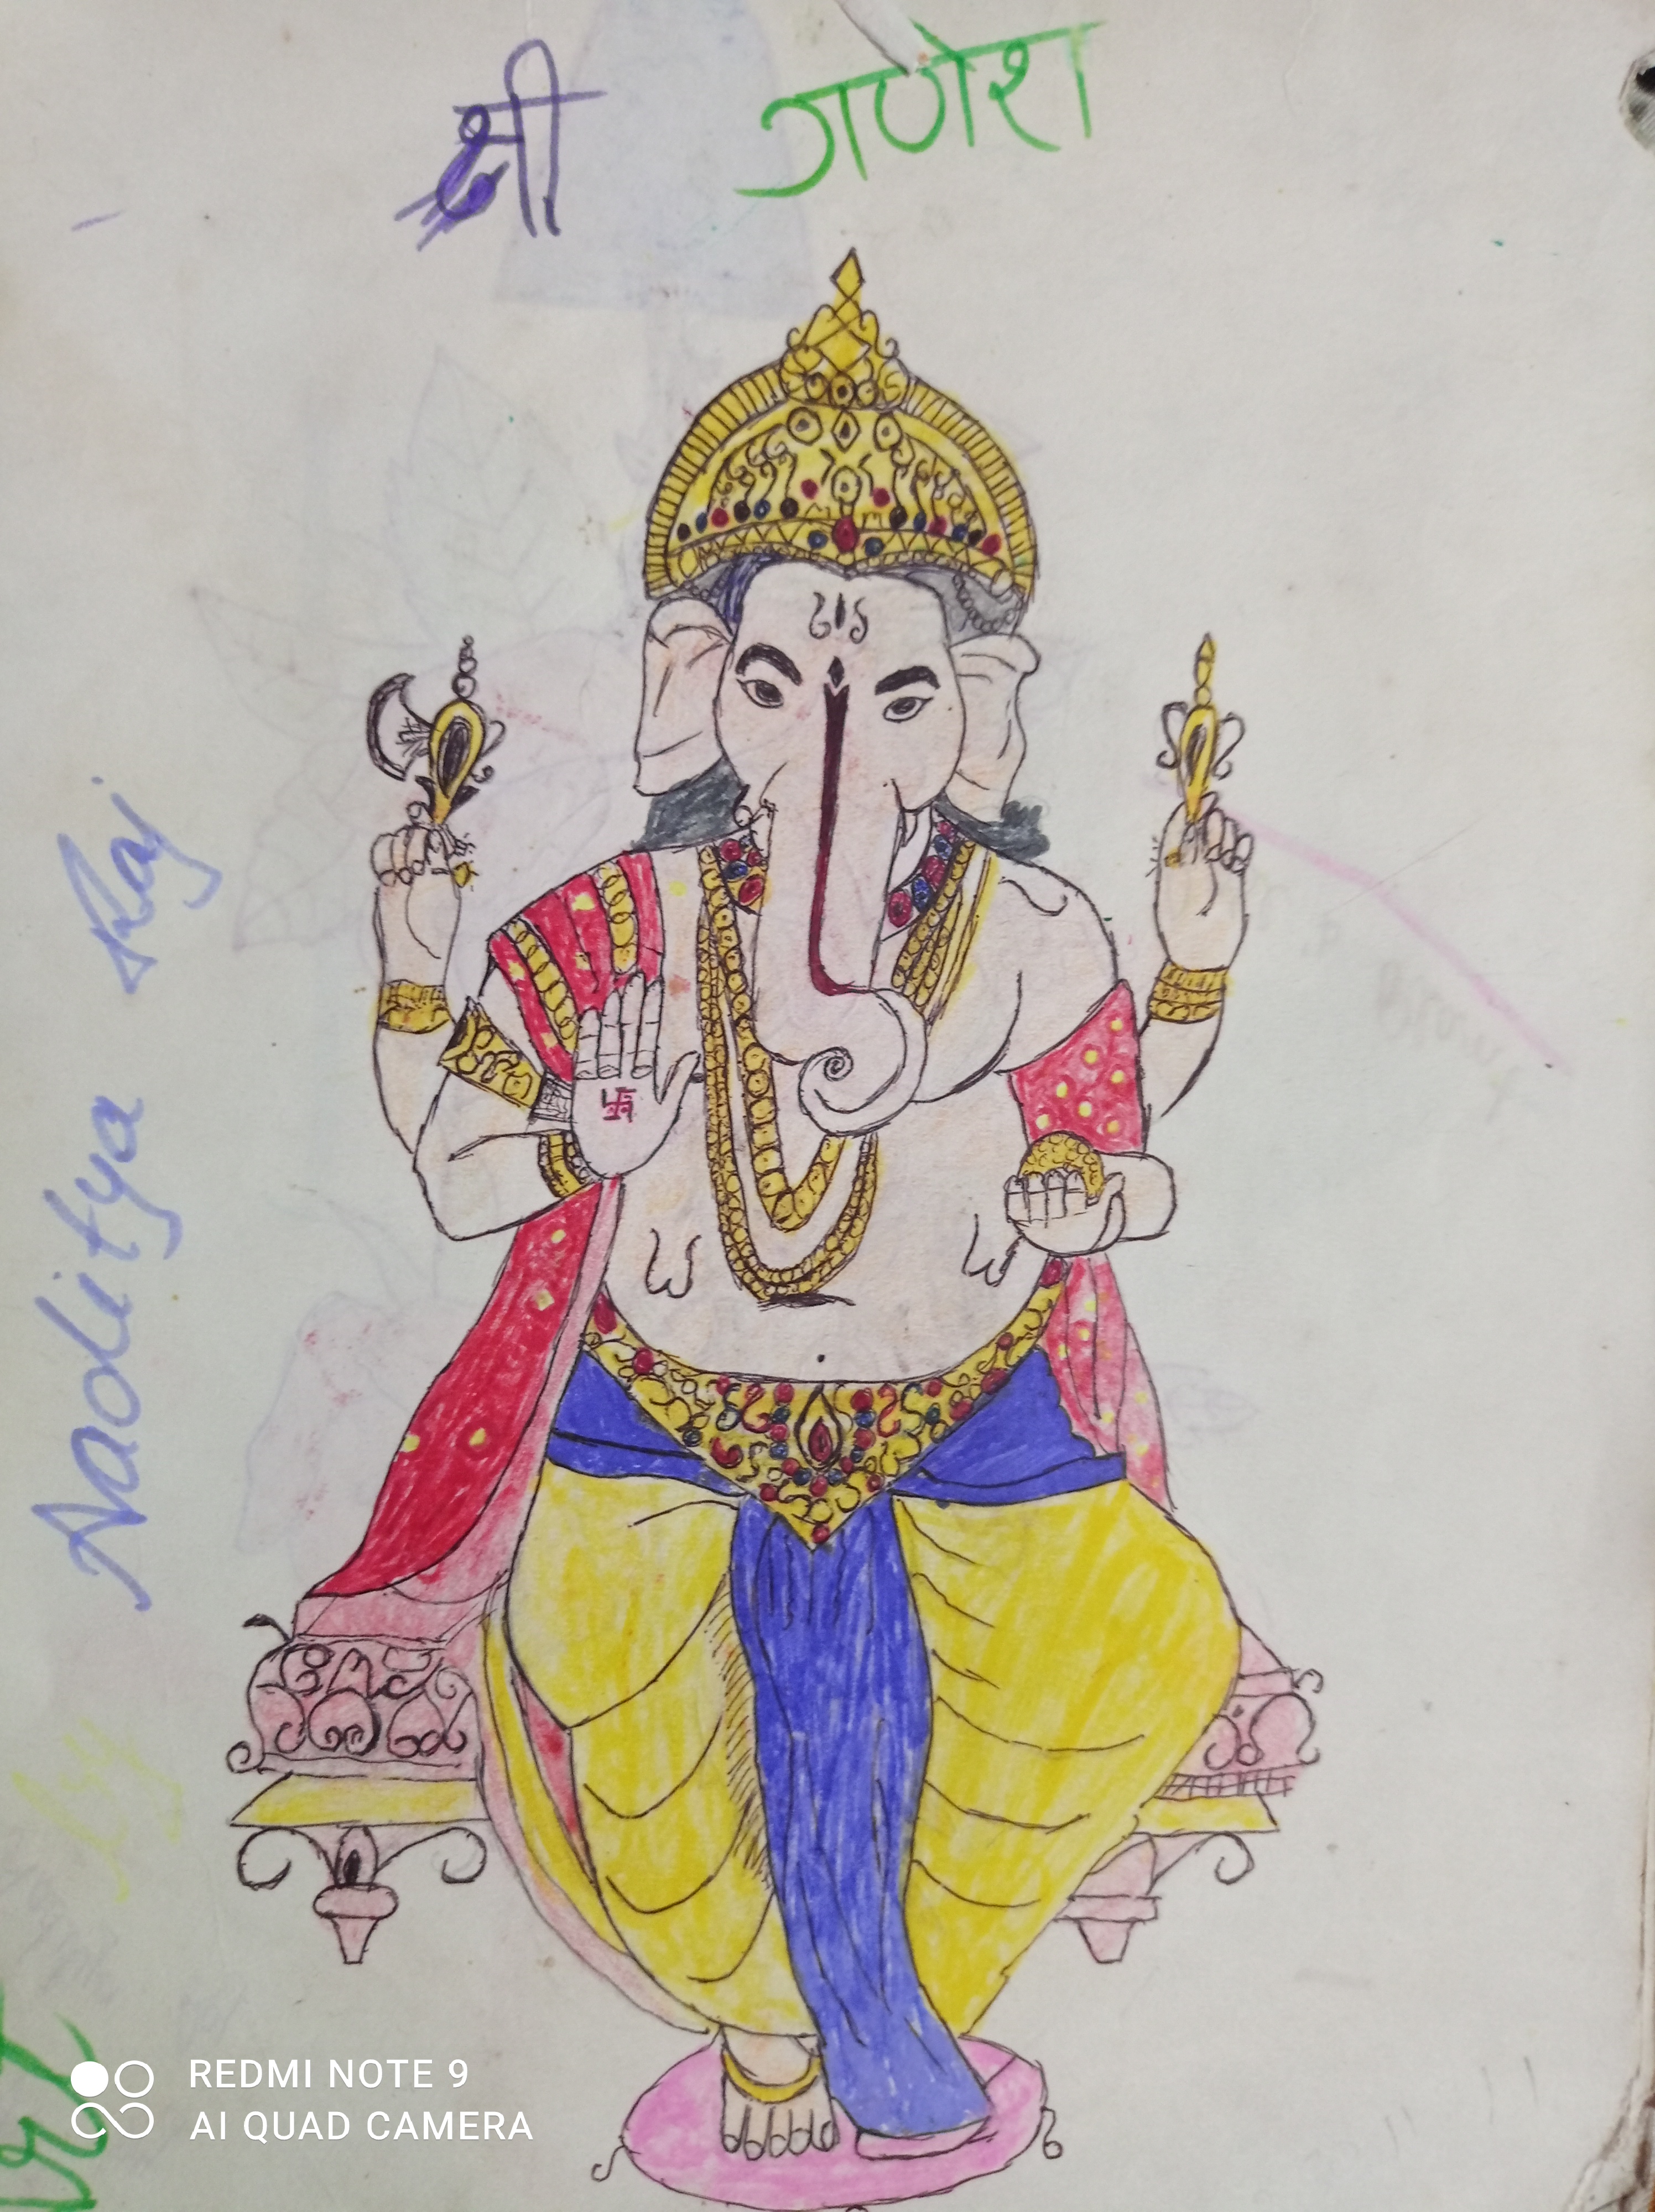 श्री गणेश
Art by Aaditya Raj
REDMI NOTE 9
AI QUAD CAMERA